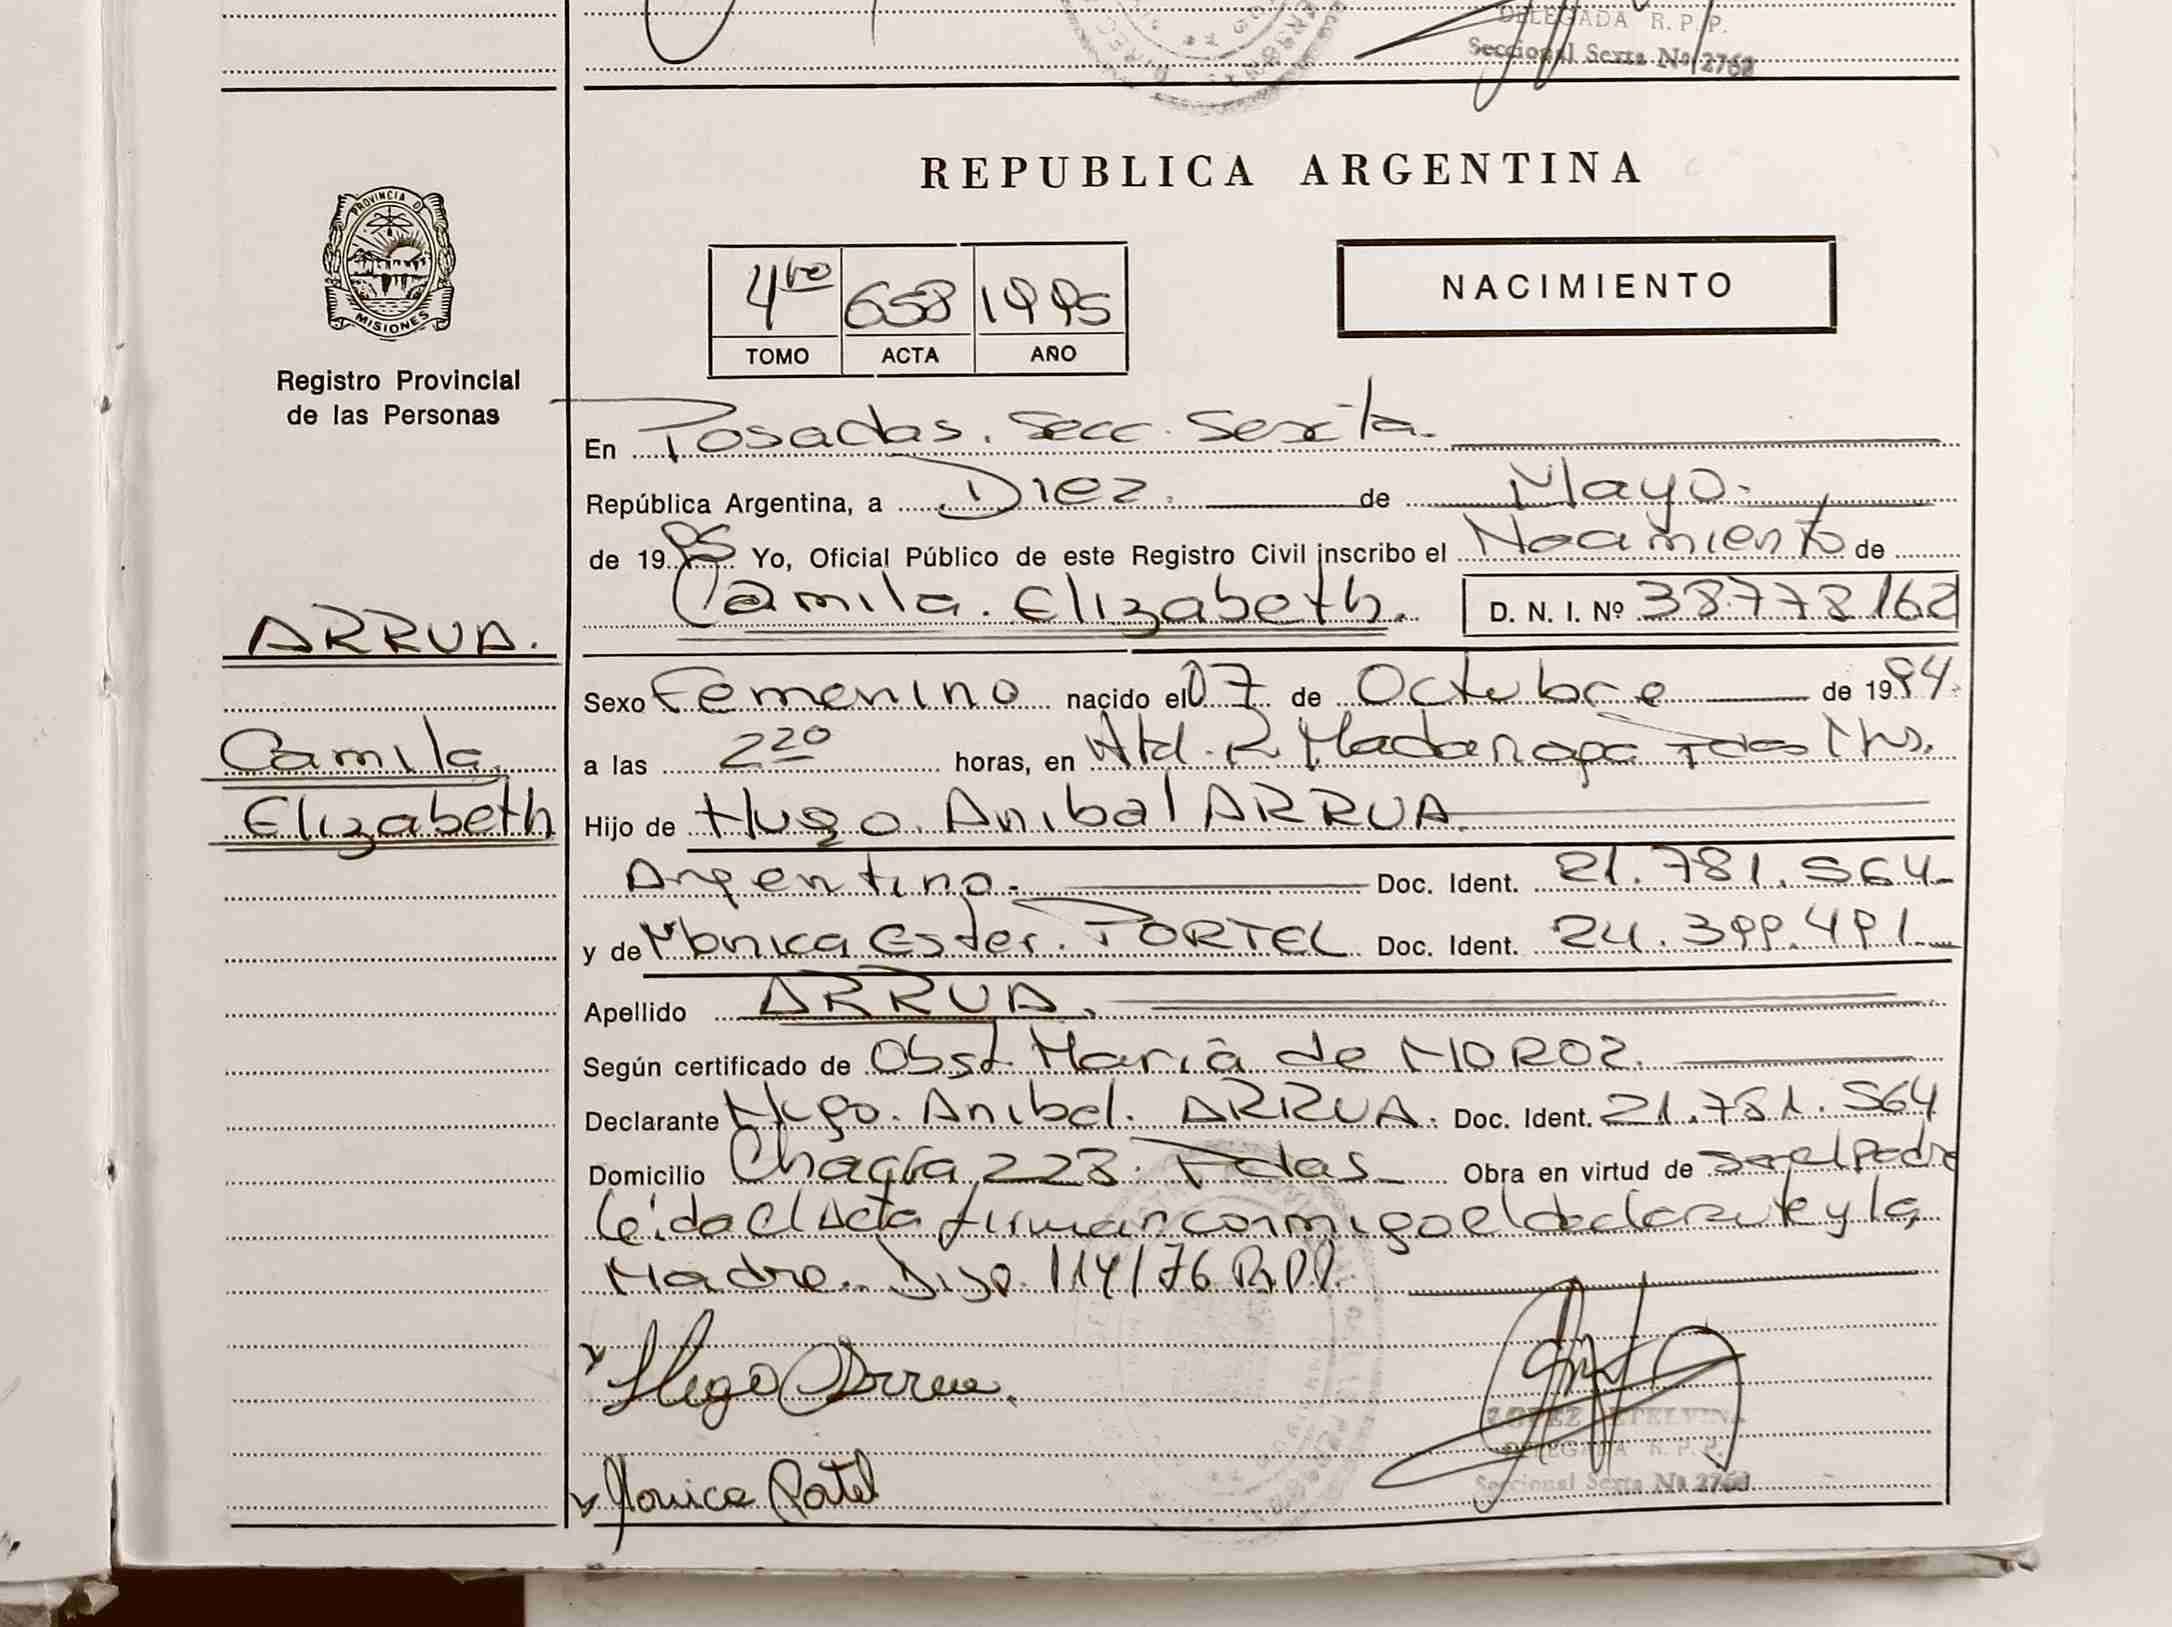 DELEGADA R. P. P.
Seccional Sexta Nº 2762
PROVINCIA D
MISIONES
Registro Provincial
de las Personas
ARRUA.
Camila
Elizabeth
REPUBLICA ARGENTINA
4to 658 1995
TOMO ACTA AÑO
NACIMIENTO
En Posadas. Secc. Sexta.
República Argentina, a Diez. de Mayo.
de 1995 Yo, Oficial Público de este Registro Civil inscribo el Nacimiento de
Camila. Elizabeth. D. N. I. Nº 38.778.162
Sexo Femenino nacido el 07 de Octubre de 1994.
a las 2 20 horas, en R. Pdas Mns.
Hijo de Hugo. Anibal ARRUA.
Argentino. Doc. Ident. 21.781.564.
y de Monica Ester. PORTEL Doc. Ident. 24.399.491.
Apellido ARRUA.
Según certificado de Obst. Maria de MOROZ.
Declarante Hugo. Anibal. ARRUA. Doc. Ident. 21.781.564
Domicilio 223. Pdas Obra en virtud de ser el Padre
leída el Acta firman conmigo el declarante y la
Madre. Disp. 114/76 R.P.P.
Hugo Arrua.
LOPEZ ETELVINA
DELEGADA R. P. P.
Seccional Sexta Nº
Monica Portel